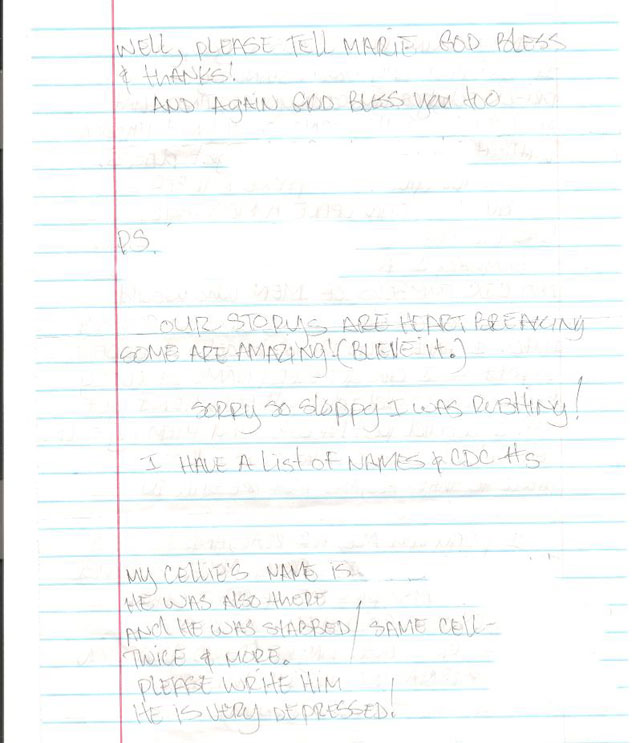 WELL, PLEASE TELL MARIE GOD BLESS
& THANKS!
AND AGAIN GOD BLESS YOU TOO
P.S.
OUR STORYS ARE HEARTBREAKING
SOME ARE AMAZING! (BLIEVE IT.)
SORRY SO SLOPPY I WAS RUSHING!
I HAVE A LIST OF NAMES & CDC #S
MY CELLIE'S NAME IS
HE WAS ALSO THERE
AND HE WAS STABBED / SAME CELL-
TWICE & MORE.
PLEASE WRITE HIM
HE IS VERY DEPRESSED!